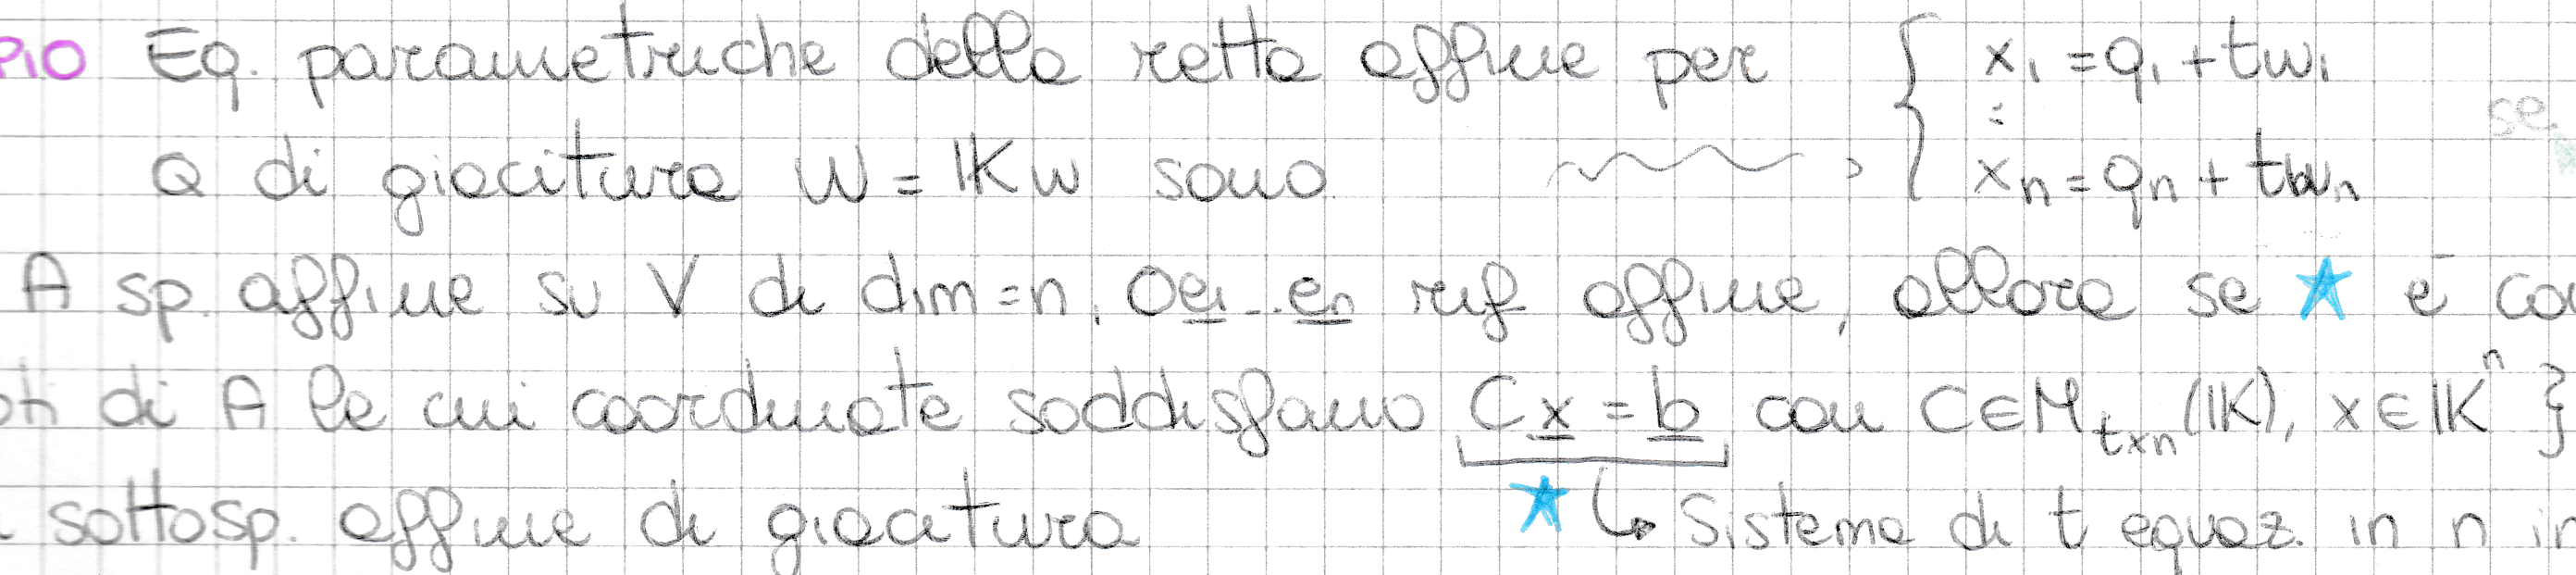 PIO Eq. parametriche della retta affine per { x₁ = q₁ + tw₁
⋮ se
Q di giacitura W = 𝕂w sono xₙ = qₙ + twₙ
A sp. affine su V di dim = n, Oe₁...eₙ rif affine, allora se ★ è co
di A le cui coordinate soddisfano Cx = b con C∈M_{t×n}(𝕂), x∈𝕂ⁿ}
sottosp. affine di giacitura ★ ↳ Sistema di t equaz. in n in